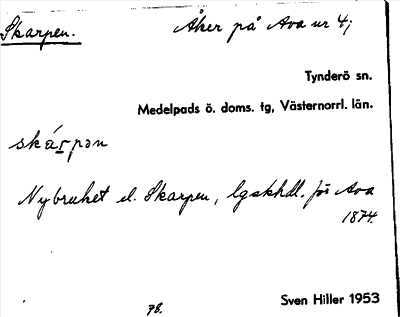 Skarpen. Åker på Ava nr 4;
Tynderö sn.
Medelpads ö. doms. tg, Västernorrl. län.
skárpən
Nybruket el. Skarpen, lgskhdl. för Ava
1874.
78. Sven Hiller 1953